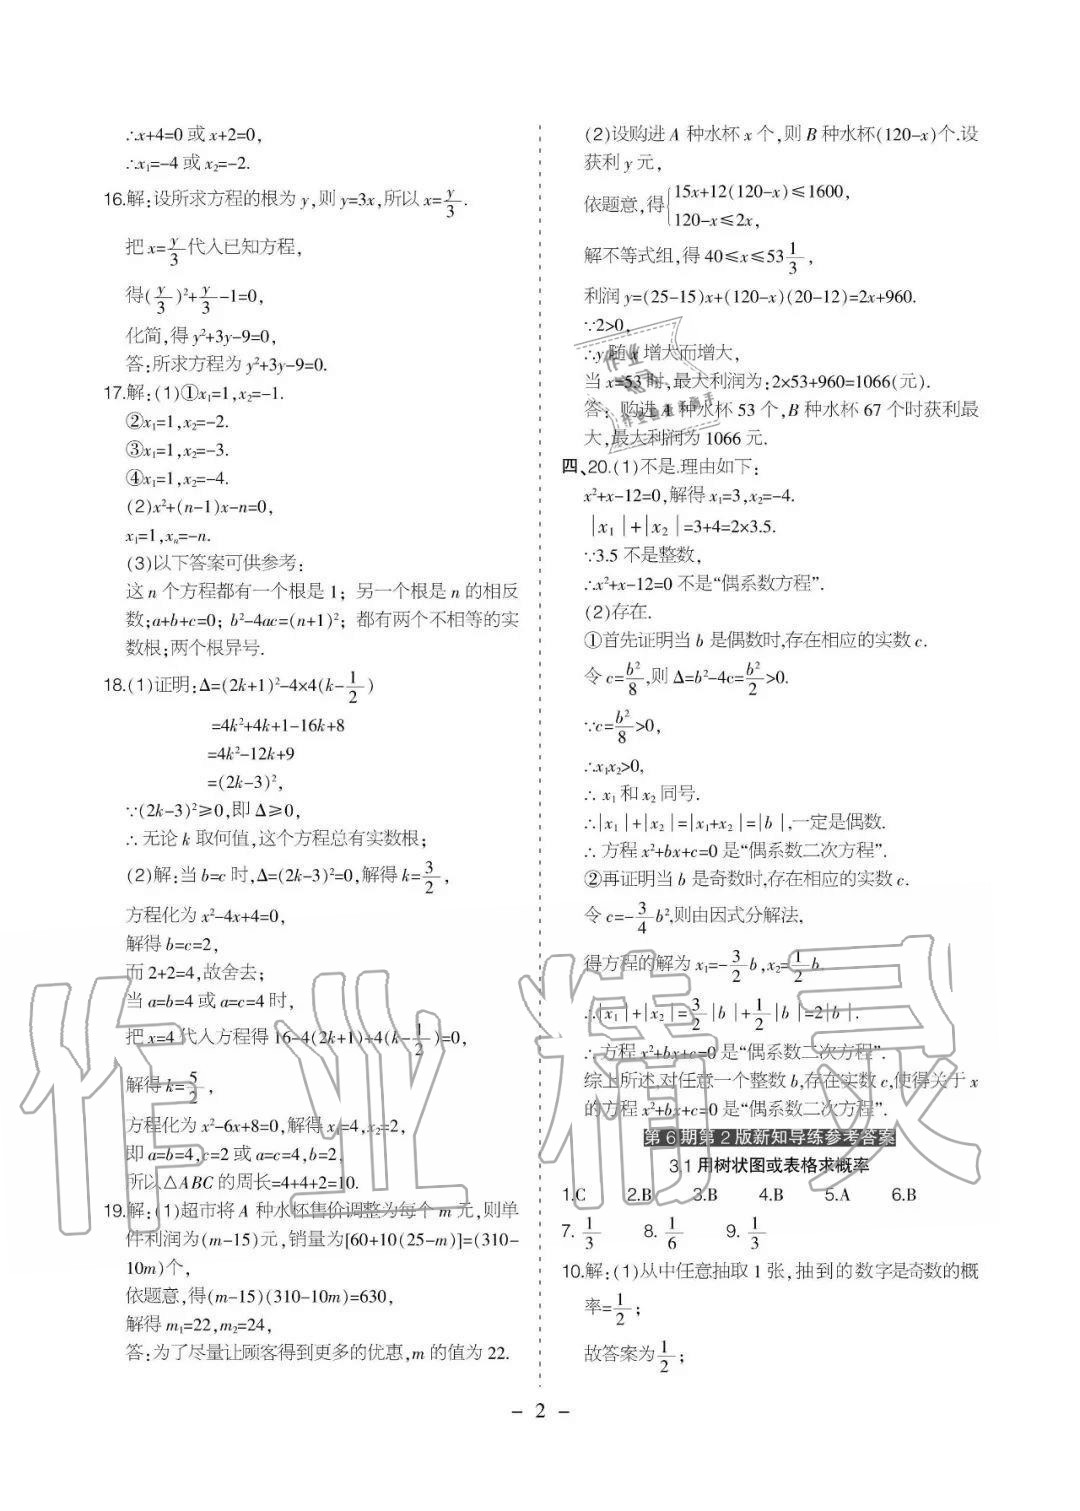 ∴x+4=0 或 x+2=0,
∴x₁=-4 或 x₂=-2.
16.解:设所求方程的根为 y,则 y=3x,所以 x=y/3.
把 x=y/3代入已知方程,
得(y/3)²+y/3-1=0,
化简,得 y²+3y-9=0,
答:所求方程为 y²+3y-9=0.
17.解:(1)①x₁=1,x₂=-1.
②x₁=1,x₂=-2.
③x₁=1,x₂=-3.
④x₁=1,x₂=-4.
(2)x²+(n-1)x-n=0,
x₁=1,xₙ=-n.
(3)以下答案可供参考:
这 n 个方程都有一个根是 1；另一个根是 n 的相反
数;a+b+c=0；b²-4ac=(n+1)²；都有两个不相等的实
数根;两个根异号.
18.(1)证明:Δ=(2k+1)²-4×4(k-1/2)
=4k²+4k+1-16k+8
=4k²-12k+9
=(2k-3)²,
∵(2k-3)²≥0,即 Δ≥0,
∴无论 k 取何值,这个方程总有实数根;
(2)解:当 b=c 时,Δ=(2k-3)²=0,解得 k=3/2,
方程化为 x²-4x+4=0,
解得 b=c=2,
而 2+2=4,故舍去;
当 a=b=4 或 a=c=4 时,
把 x=4 代入方程得 16-4(2k+1)+4(k-1/2)=0,
解得 k=5/2,
方程化为 x²-6x+8=0,解得 x₁=4,x₂=2,
即 a=b=4,c=2 或 a=c=4,b=2,
所以△ABC 的周长=4+4+2=10.
19.解:(1)超市将 A 种水杯售价调整为每个 m 元,则单
件利润为(m-15)元,销量为[60+10(25-m)]=(310-
10m)个,
依题意,得(m-15)(310-10m)=630,
解得 m₁=22,m₂=24,
答:为了尽量让顾客得到更多的优惠,m 的值为 22.
(2)设购进 A 种水杯 x 个,则 B 种水杯(120-x)个.设
获利 y 元,
依题意,得{15x+12(120-x)≤1600,
120-x≤2x,
解不等式组,得 40≤x≤53 1/3,
利润 y=(25-15)x+(120-x)(20-12)=2x+960.
∵2>0,
∴y 随 x 增大而增大,
当 x=53 时,最大利润为:2×53+960=1066(元).
答：购进 A 种水杯 53 个,B 种水杯 67 个时获利最
大,最大利润为 1066 元.
四、20.(1)不是.理由如下:
x²+x-12=0,解得 x₁=3,x₂=-4.
|x₁|+|x₂|=3+4=2×3.5.
∵3.5 不是整数,
∴x²+x-12=0 不是“偶系数方程”.
(2)存在.
①首先证明当 b 是偶数时,存在相应的实数 c.
令 c=b²/8,则 Δ=b²-4c=b²/2>0.
∵c=b²/8>0,
∴x₁x₂>0,
∴ x₁ 和 x₂ 同号.
∴|x₁|+|x₂|=|x₁+x₂|=|b|,一定是偶数.
∴ 方程 x²+bx+c=0 是“偶系数二次方程”.
②再证明当 b 是奇数时,存在相应的实数 c.
令 c=-3/4 b²,则由因式分解法,
得方程的解为 x₁=-3/2 b,x₂=1/2 b.
∴|x₁|+|x₂|=3/2|b|+1/2|b|=2|b|.
∴方程 x²+bx+c=0 是“偶系数二次方程”.
综上所述,对任意一个整数 b,存在实数 c,使得关于 x
的方程 x²+bx+c=0 是“偶系数二次方程”.
第 6 期第 2 版新知导练参考答案
3.1 用树状图或表格求概率
1.C 2.B 3.B 4.B 5.A 6.B
7. 1/3 8. 1/6 9. 1/3
10.解:(1)从中任意抽取 1 张,抽到的数字是奇数的概
率=1/2;
故答案为1/2;
- 2 -
作业精灵